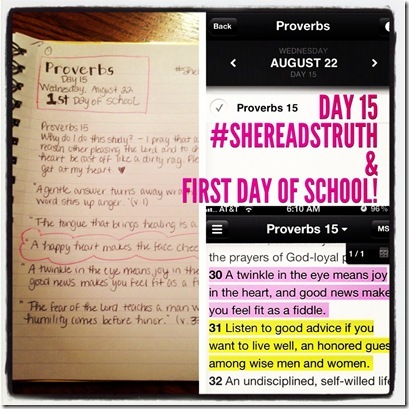 Proverbs
Day 15
Wednesday, August 22
1st Day of School
#She
Proverbs 15
Why do I do this study? - I pray that
reason other pleasing the lord and to
heart be cast off like a dirty rag.
get at my heart. ♥
"A gentle answer turns away
word stirs up anger." (v. 1)
"The tongue that brings healing is
"A happy heart makes the face
"A twinkle in the eye means joy in the
good news makes you feel fit as a
"The fear of the lord teaches a man
humility comes before honor."
Back
Proverbs
WEDNESDAY
AUGUST 22
DAY 15
Proverbs 15
DAY 15
#SHEREADSTRUTH
&
FIRST DAY OF SCHOOL!
AT&T
6:10 AM
96%
Proverbs 15
MS
1/1
the prayers of God-loyal p
30 A twinkle in the eye means joy
in the heart, and good news make
you feel fit as a fiddle.
31 Listen to good advice if you
want to live well, an honored gues
among wise men and women.
32 An undisciplined, self-willed life